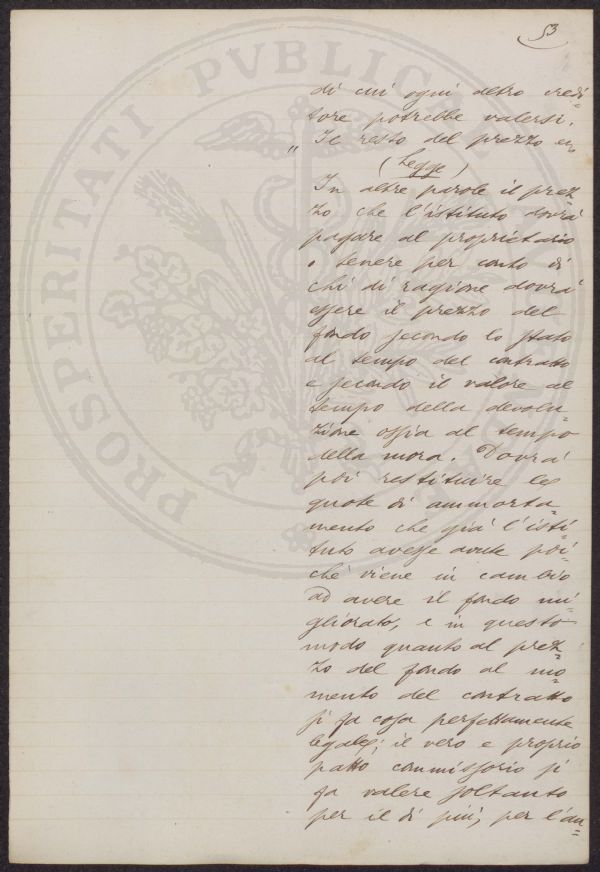 53
di cui ogni altro credi=
tore potrebbe valersi.
" Il resto del prezzo ec.
(Legge)
In altre parole il prez=
zo che l'istituto dovrà
pagare al proprietario
o tenere per conto di
chi di ragione dovrà
essere il prezzo del
fondo secondo lo stato
al tempo del contratto
e secondo il valore al
tempo della devolu=
zione ossia al tempo
della mora. Dovrà
poi restituire le
quote di ammorta=
mento che già l'isti=
tuto avesse avute poi=
chè viene in cambio
ad avere il fondo mi=
gliorato, e in questo
modo quanto al prez=
zo del fondo al mo=
mento del contratto
si fa cosa perfettamente
legale; il vero e proprio
patto commissorio si
fa valere soltanto
per il di più, per l'au=
PROSPERITATI PVBLICAE